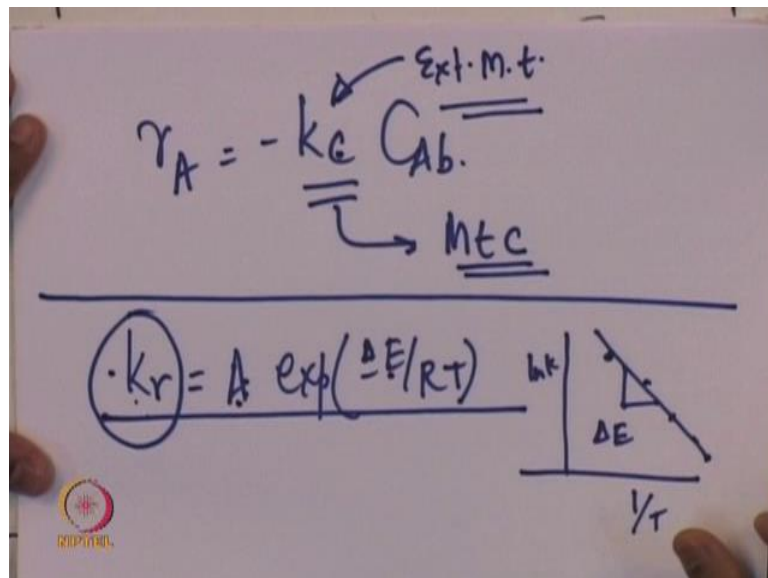 Ext. m. t.
r_A = - k_c C_Ab.
Mtc
k_r = A exp(-ΔE/RT)
ln k
ΔE
1/T
NPTEL